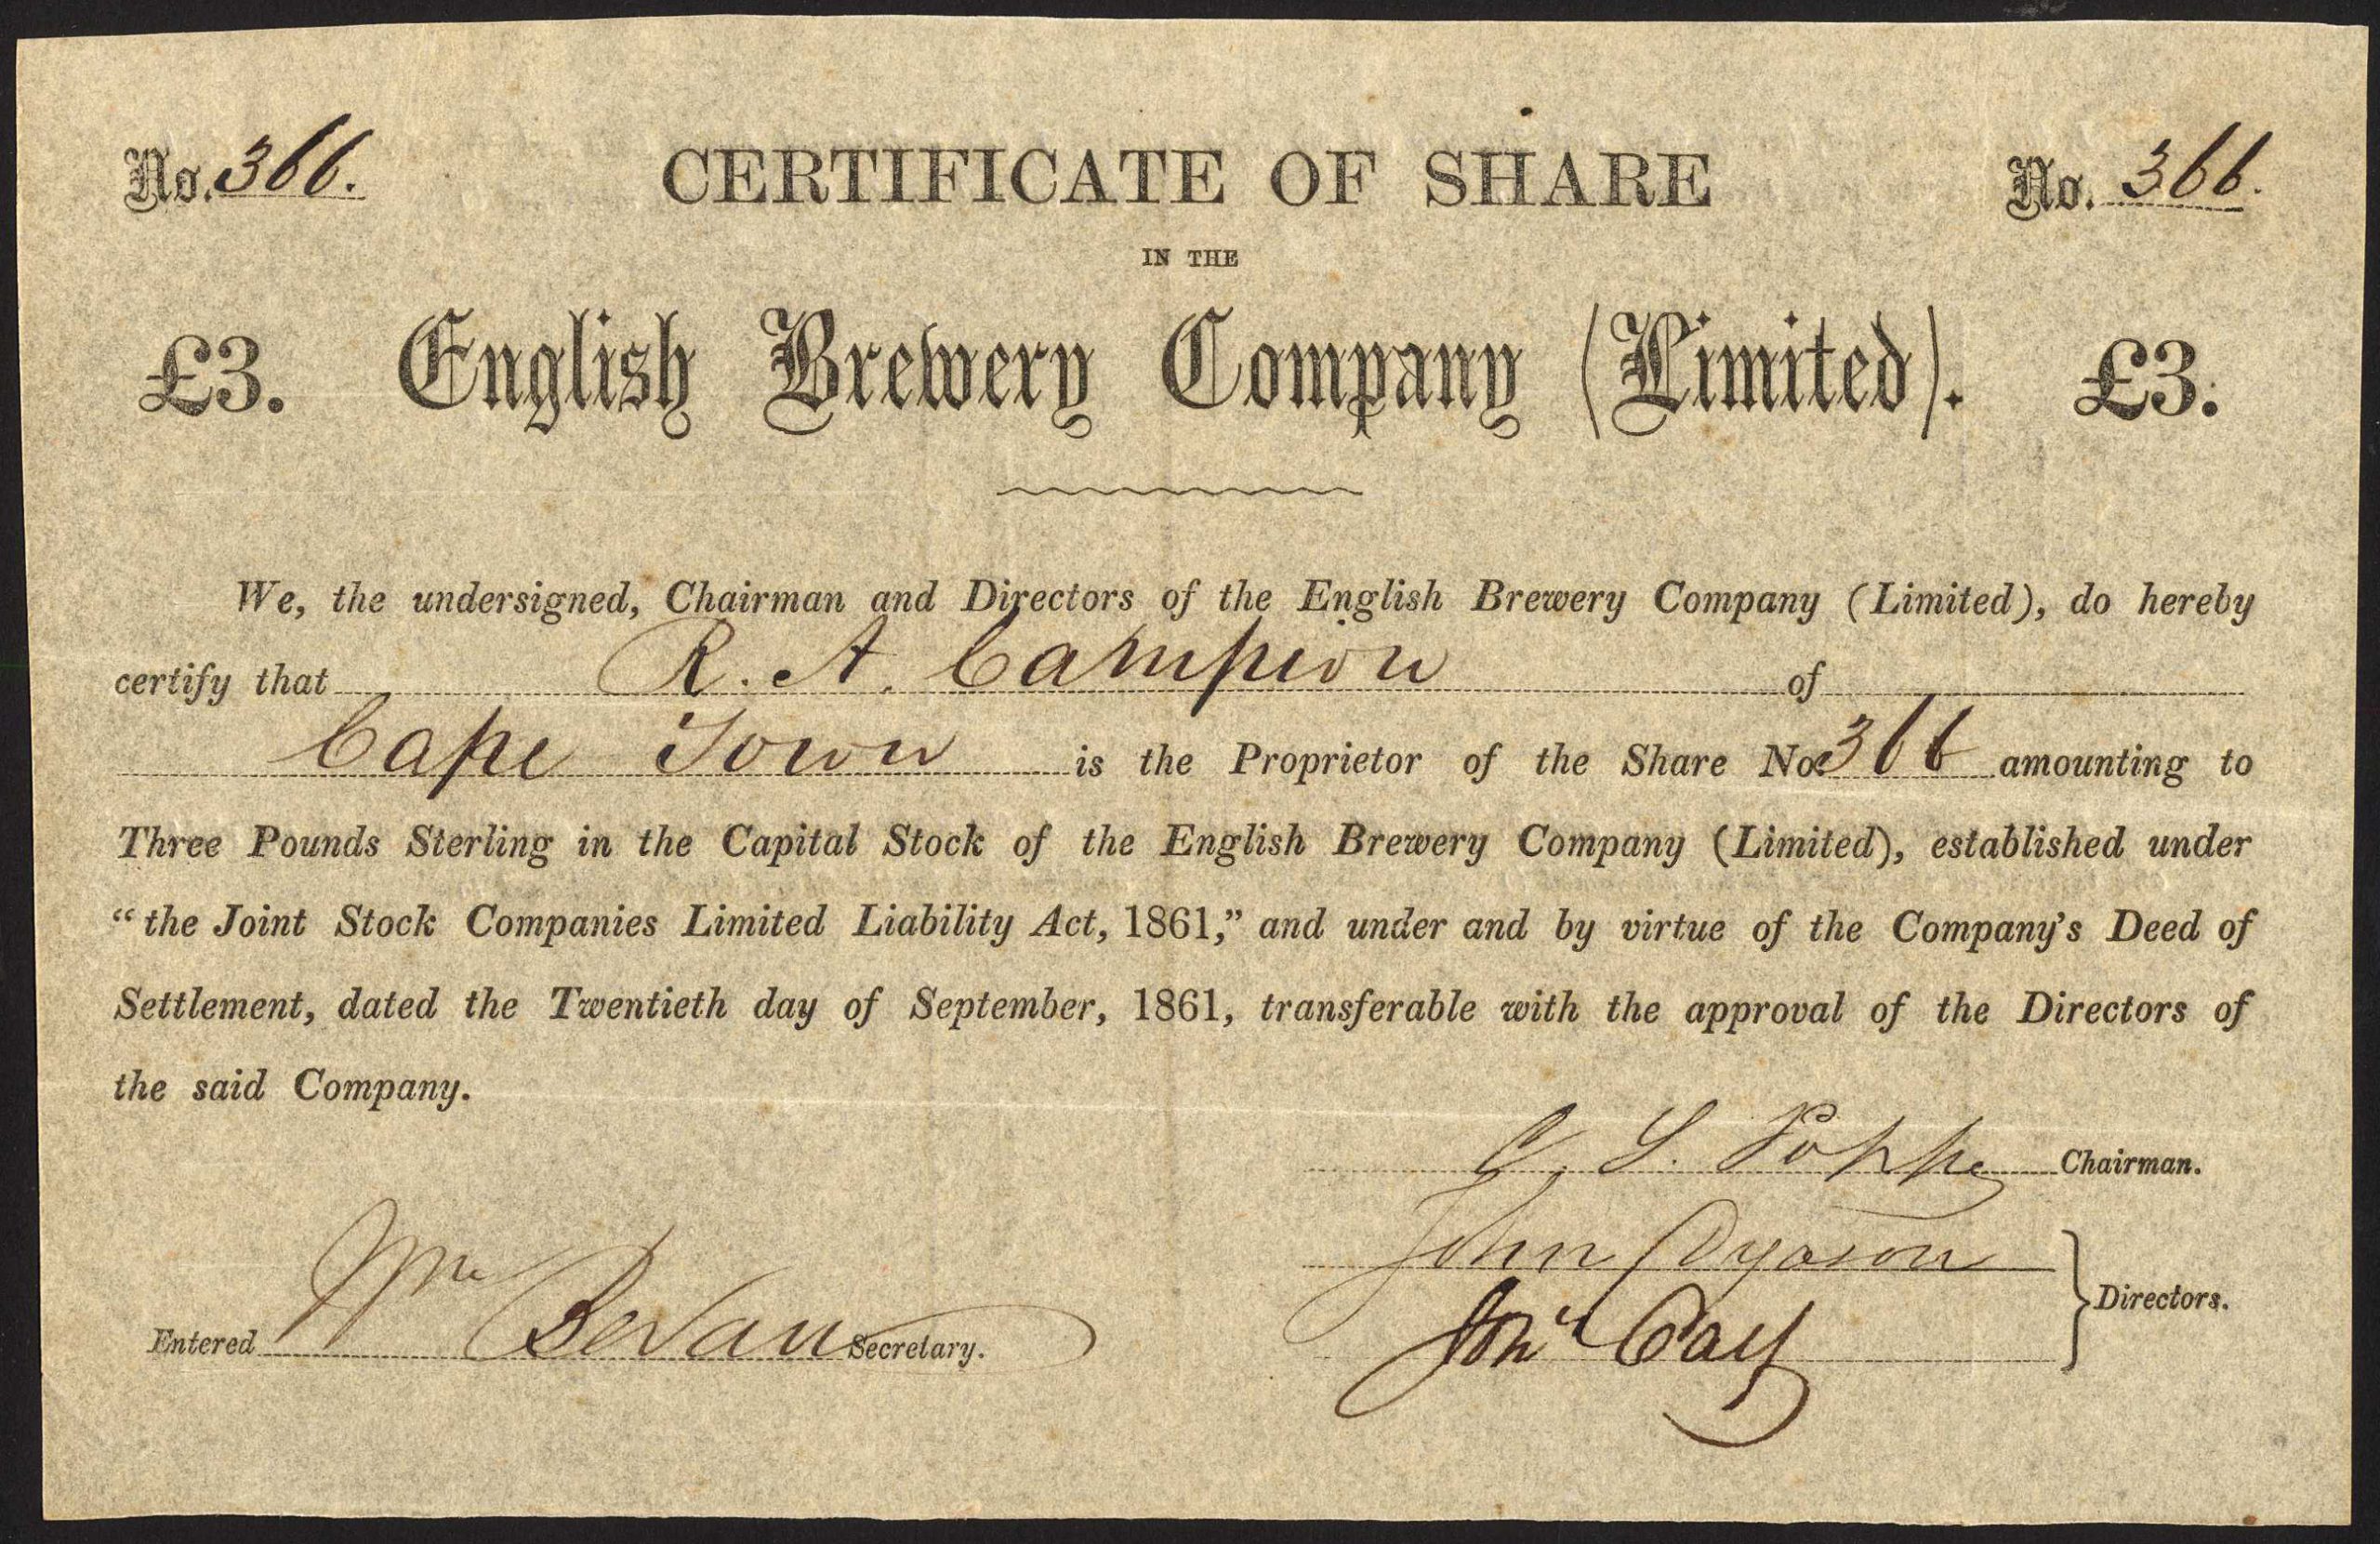 No. 366. CERTIFICATE OF SHARE No. 366.
IN THE
£3. English Brewery Company (Limited). £3.
We, the undersigned, Chairman and Directors of the English Brewery Company (Limited), do hereby
certify that R. A. Campion of
Cape Town is the Proprietor of the Share No. 366 amounting to
Three Pounds Sterling in the Capital Stock of the English Brewery Company (Limited), established under
“the Joint Stock Companies Limited Liability Act, 1861,” and under and by virtue of the Company's Deed of
Settlement, dated the Twentieth day of September, 1861, transferable with the approval of the Directors of
the said Company.
C. L. Poppe Chairman.
John Dyason
Directors.
Entered Wm Bevan Secretary.